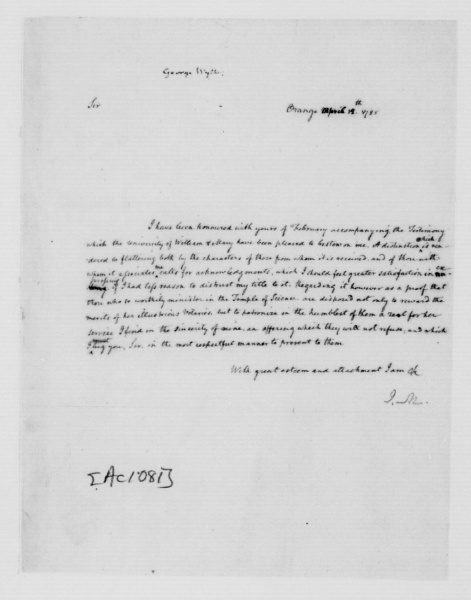 George Wyth.
Sir
Orange April 15th 1785
I have been honoured with yours of February accompanying the Testimony
which the University of William & Mary have been pleased to bestow on me. A distinction which is ren-
dered so flattering both by the characters of those from whom it is received and of those with
whom it associates me calls for acknowledgments, which I should feel greater satisfaction in ex-
pressing if I had less reason to distrust my title to it. Regarding it however as a proof that
those who so worthily minister in the Temple of Science are disposed not only to reward the
merits of her illustrious Votaries but to patronize in the humblest of them a zeal for her
service I find in the sincerity of mine an offering which they will not refuse, and which
I beg you, Sir, in the most respectful manner to present to them
With great esteem and attachment I am &c
J. M.
[Ac. 1081]